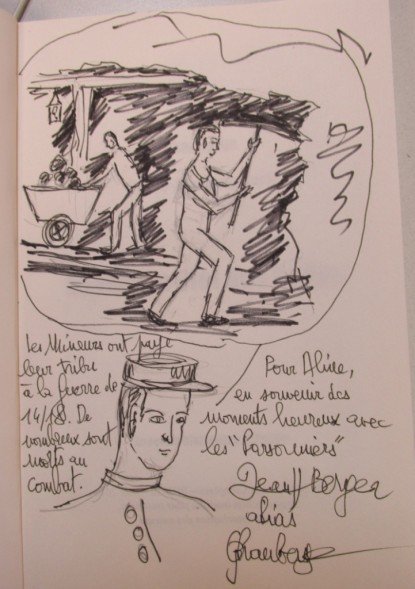 Les Mineurs ont payé
leur tribu
à la Guerre de
14/18. De
nombreux sont
morts au
Combat.
Pour Aline,
en souvenir des
moments heureux avec
les "Parsonniers"
Jean Berger
alias